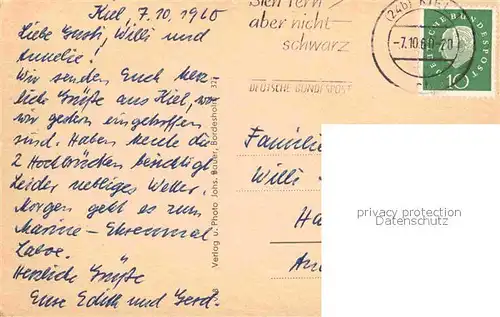 Kiel, 7.10.1960
Liebe Gusti, Willi und
Annelie!
Wir senden Euch herz-
liche Grüße aus Kiel, wo
wir gestern eingetroffen
sind. Haben heute die
2 Hochbrücken besichtigt
Leider nebliges Wetter.
Morgen geht es zum
Marine-Ehrenmal
Laboe.
Herzliche Grüße
Eure Edith und Gerd.
Verlag u. Photo Johs. Bauer, Bordesholm
Sieh fern
aber nicht
schwarz
DEUTSCHE BUNDESPOST
(24b) KIEL
-7.10.60-20
DEUTSCHE BUNDESPOST
10
Familie
Willi
Ha
privacy protection
Datenschutz